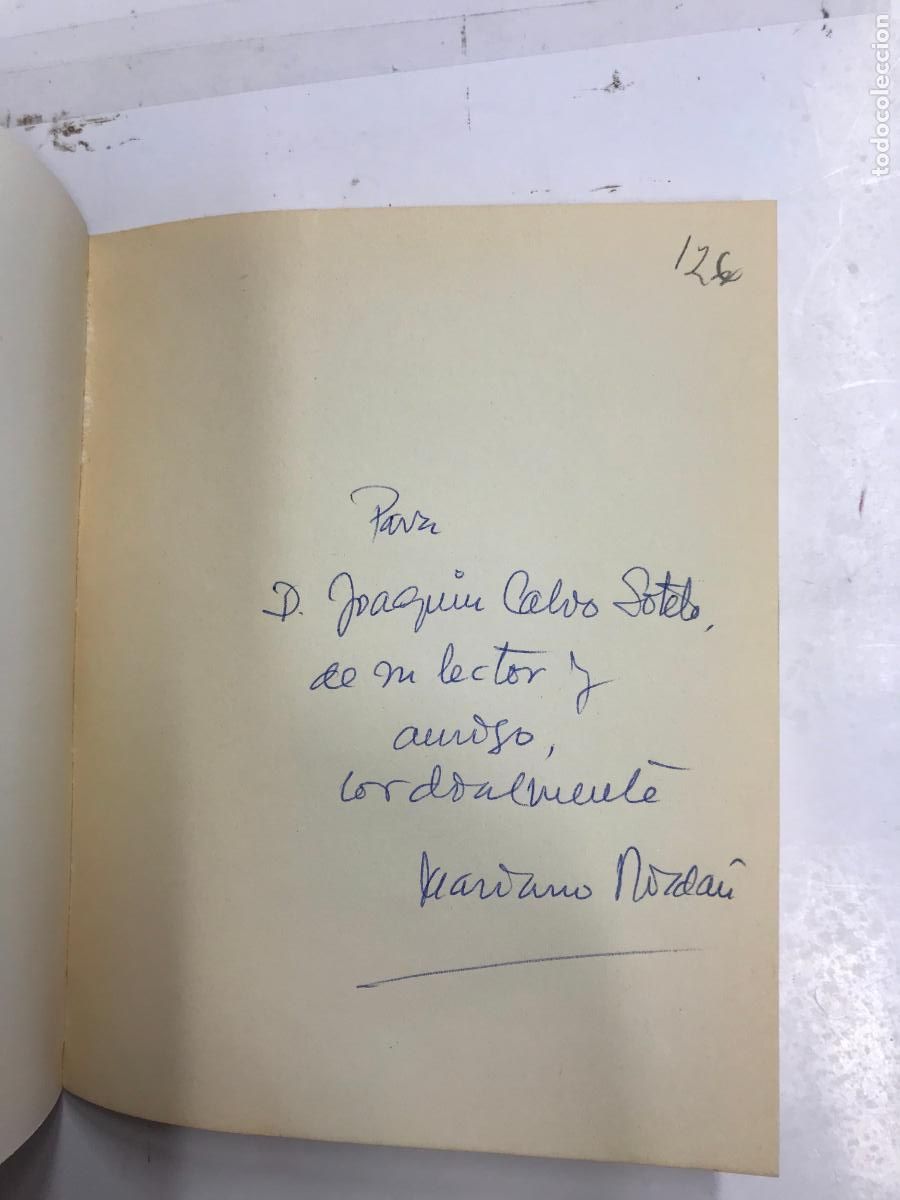 todocoleccion
126
Para
D. Joaquin Calvo Sotelo,
de su lector y
amigo,
cordialmente
Mariano Roldán